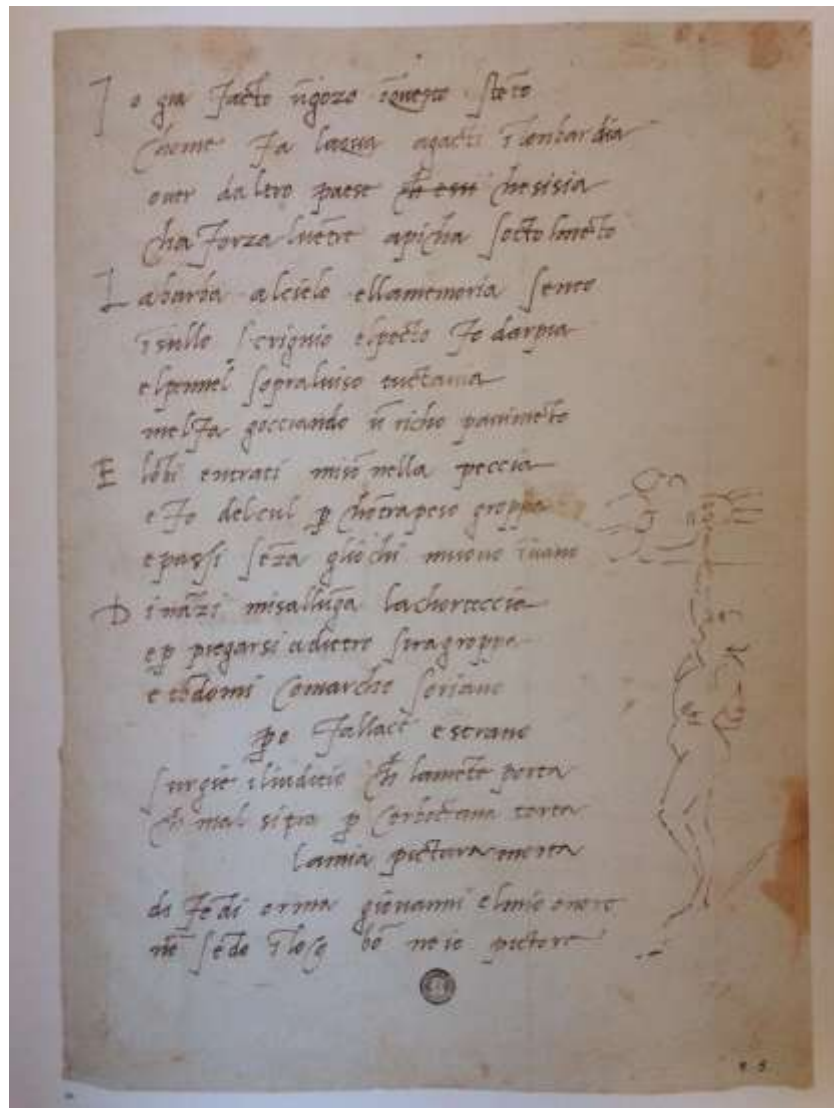 I o gia facto ũgozo ĩquesto stẽto
chome fa laqua agacti ĩlonbardia
over daltro paese ch essi chesisia
cha forza lvẽtre apicha socto lmẽto
L abarba alcielo ellamemoria sento
ĩsullo scrignio elpecto fo darpia
elpennel sopraluiso tuctauia
melfa gocciando ũ richo pauimẽto
E lõbi entrati misõ nella peccia
e fo delcul ꝑ chõtrapeso groppa
e passi sẽza gliochi muouo ĩuano
D inãzi misallũga lachorteccia
e ꝑ piegarsi adietro siragroppa
e tẽdomi comarcho soriano
ꝑo fallace e strano
surgie iliuditio ch̃ lamẽte porta
ch̃ mal sitra ꝑ cerboctana torta
lamia pictura morta
di fẽdi orma giouanni elmio onore
nõ sẽdo ĩlog bõ ne io pictore